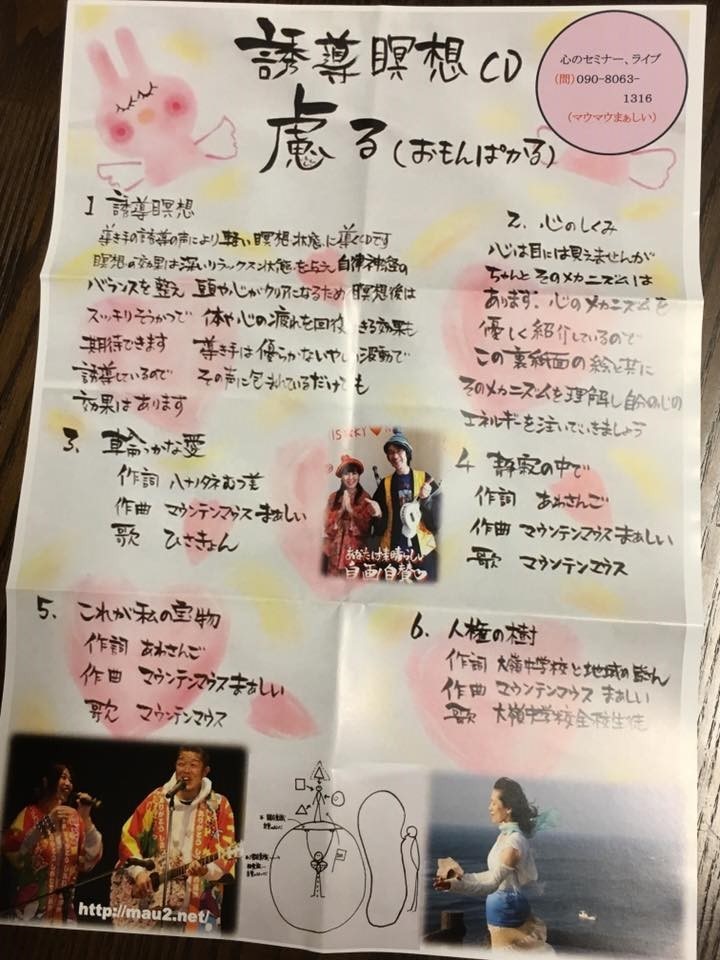 誘導瞑想 CD
慮る(おもんぱかる)
心のセミナー、ライブ
(問)090-8063-
1316
(マウマウまぁしい)
1 誘導瞑想
導き手の誘導の声により軽い瞑想状態に導くCDです
瞑想の効果は深いリラックスン状態を与え自律神経の
バランスを整え 頭や心がクリアになるため 瞑想後は
スッキリそうかつで 体や心の疲れを回復できる効果も
期待できます 導き手は優らかないやしい波動で
誘導しているので その声に包まれているだけでも
効果はあります
2. 心のしくみ
心は目には見えませんが
ちゃんとそのメカニズムは
あります。心のメカニズムを
優しく紹介しているので
この裏紙面の絵と共に
そのメカニズムを理解し自分の心の
エネルギーを注いでいきましょう
3. 輪っかな愛
作詞 ハナノタネむつ美
作曲 マウンテンマウス まぁしい
歌 ひさきょん
あなたは素晴らしい
自画自賛
4 静寂の中で
作詞 あわさんご
作曲 マウンテンマウスまぁしい
歌 マウンテンマウス
5. これが私の宝物
作詞 あわさんご
作曲 マウンテンマウスまぁしい
歌 マウンテンマウス
6. 人権の樹
作詞 大嶺中学校と地域の皆さん
作曲 マウンテンマウス まぁしい
歌 大嶺中学校全校生徒
http://mau2.net/